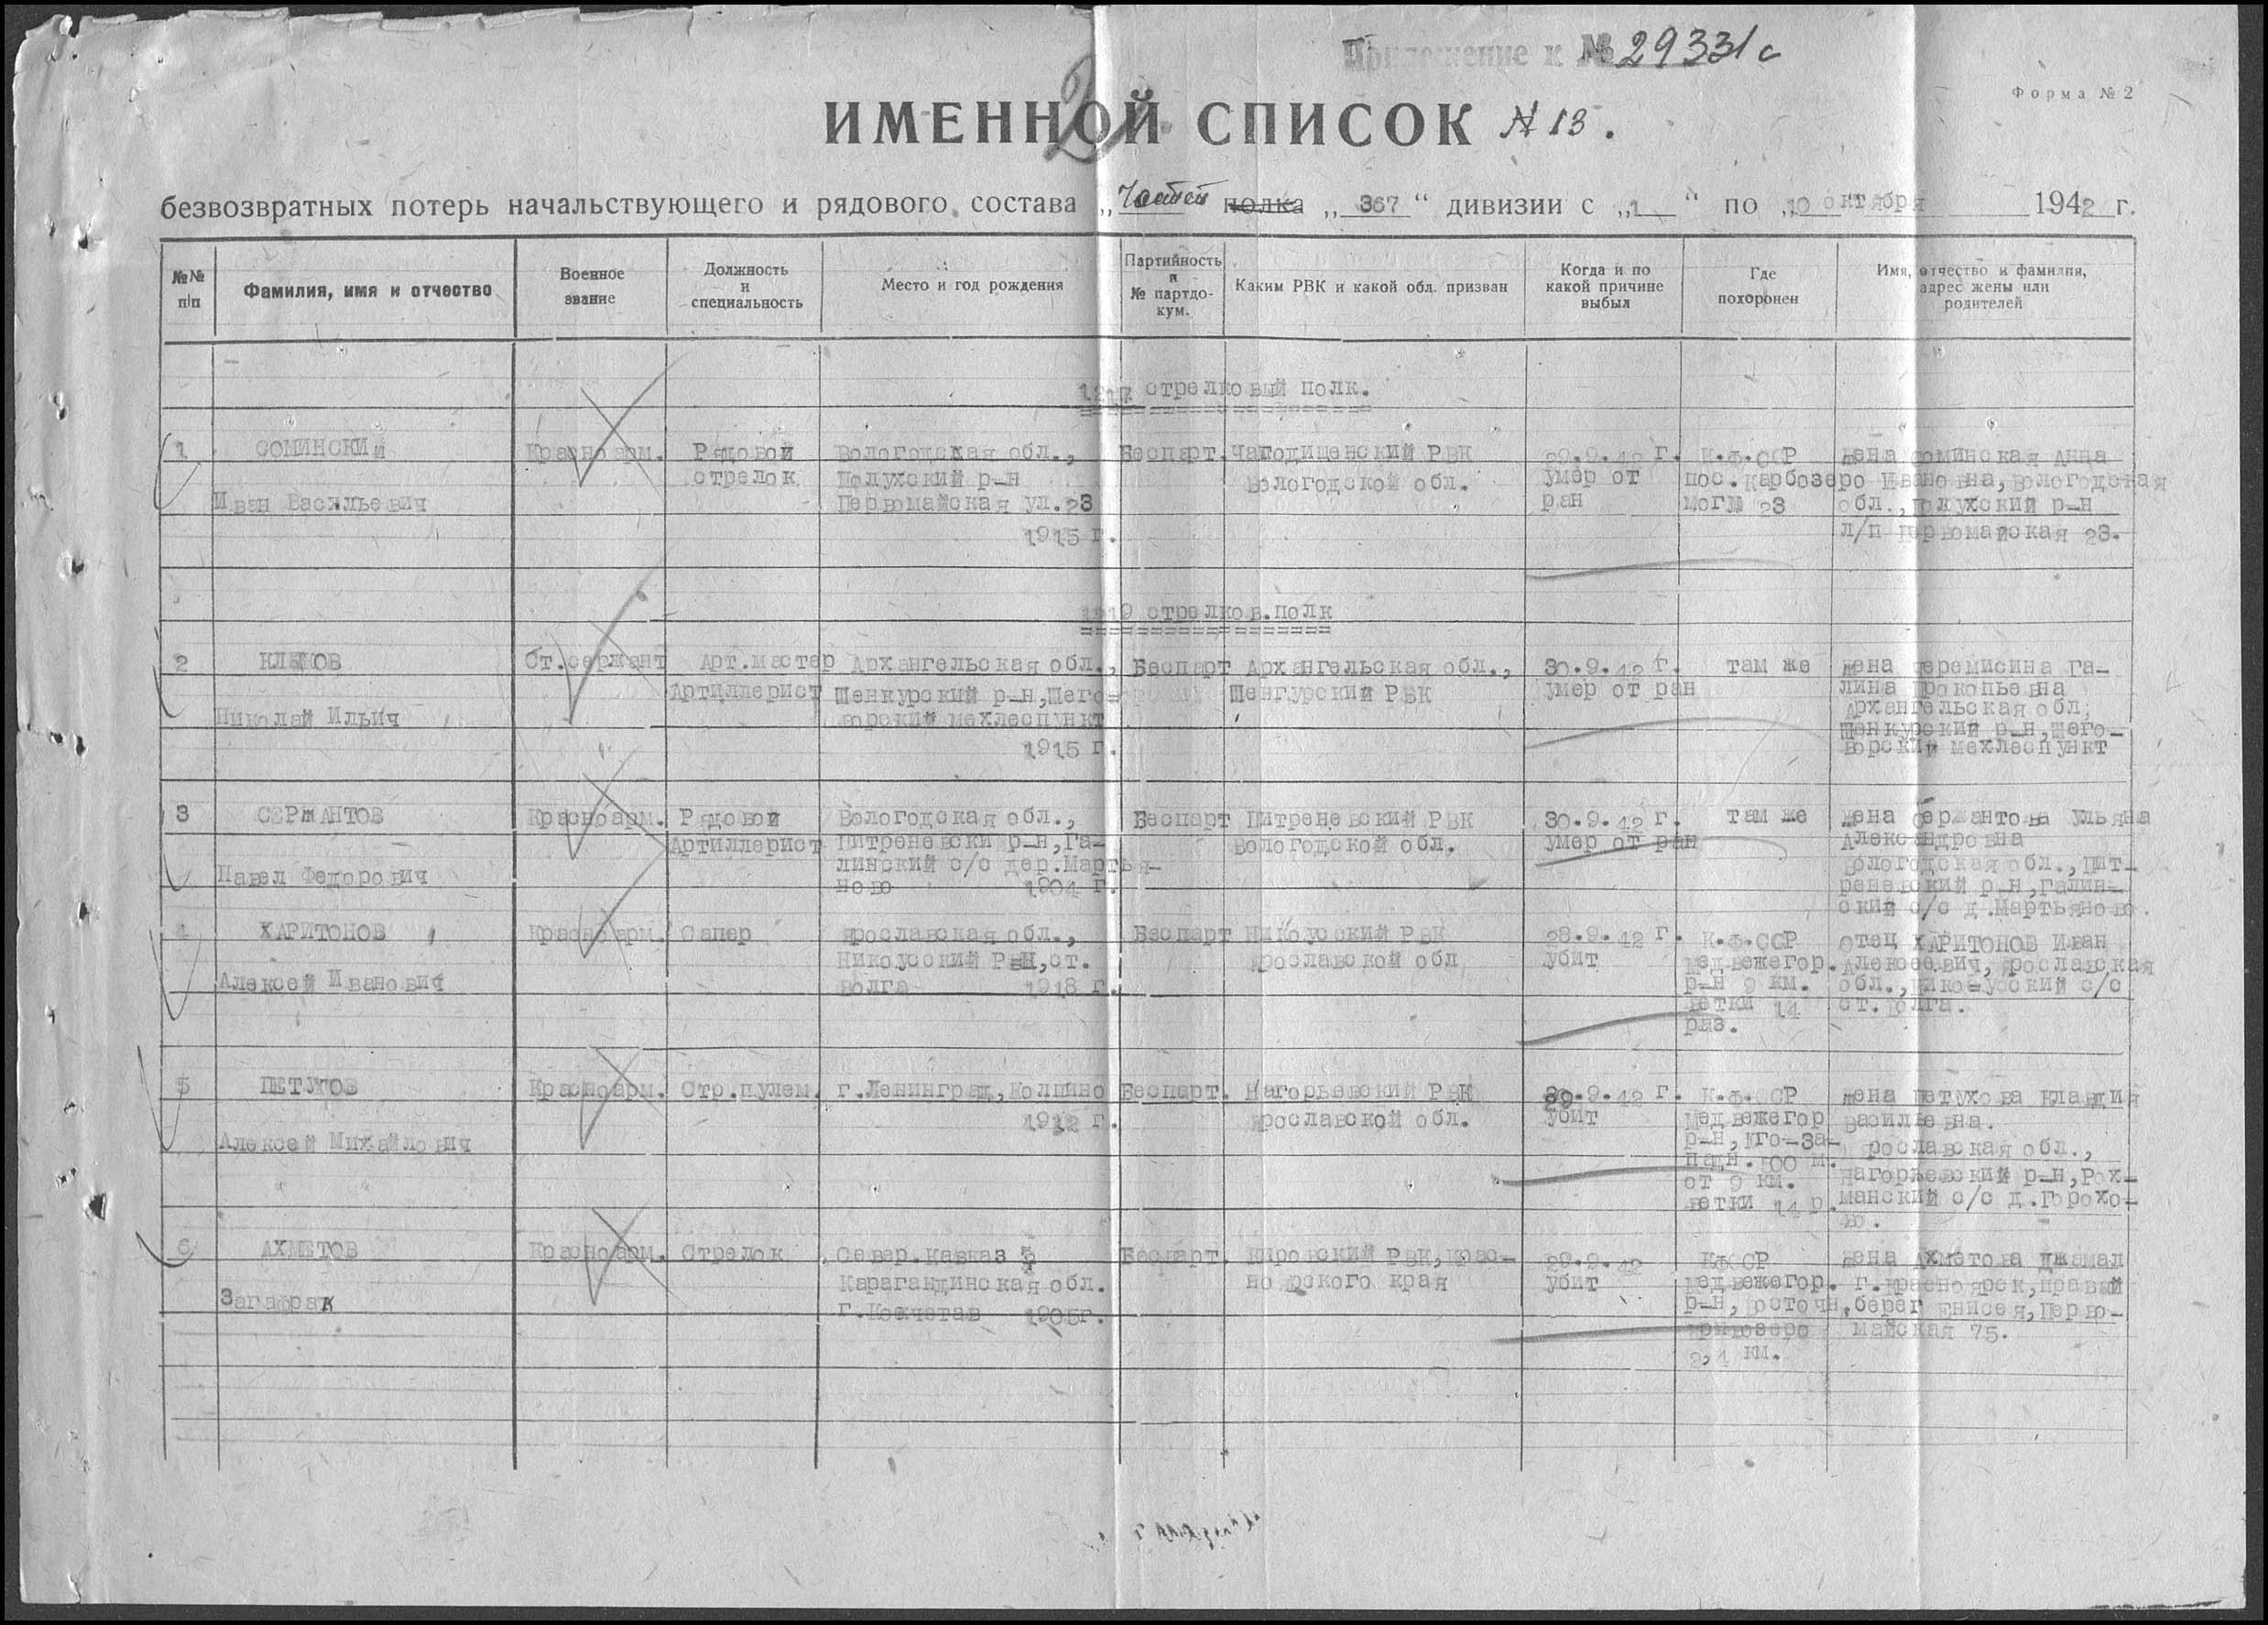 Приложение к № 29331с
Форма № 2
2
ИМЕННОЙ СПИСОК № 13.
безвозвратных потерь начальствующего и рядового состава „частей полка „367“ дивизии с „1“ по „10 октября 1942 г.
№№ п/п
Фамилия, имя и отчество
Военное звание
Должность и специальность
Место и год рождения
Партийность и № партдо-кум.
Каким РВК и какой обл. призван
Когда и по какой причине выбыл
Где похоронен
Имя, отчество и фамилия, адрес жены или родителей
1217 стрелковый полк.
1 СОМИНСКИЙ Красноарм. Рядовой Вологодская обл., Беспарт. Чагодищенский РВК 29.9.42 г. К.Ф.ССР жена Соминская Анна
стрелок Полухский р-н Вологодской обл. умер от пос. Карбозеро Ивановна, Вологодская
Иван Васильевич Первомайская ул.23 ран мог№ 23 обл., Полухский р-н
1915 г. л/п Первомайская 23.
1219 стрелков.полк
2 КЛЕМОВ Ст.сержант Арт.мастер Архангельская обл., Беспарт Архангельская обл., 30.9.42 г. там же жена Черемисина Га-
Артиллерист Шенкурский р-н, Шего- Шенгурский РВК умер от ран лина Прокопьевна
Николай Ильич ворский мехлеспункт Архангельская обл.
1915 г. Шенкурский р-н, Шего-
ворский мехлеспункт
3 СЕРЖАНТОВ Красноарм. Рядовой Вологодская обл., Беспарт Питреневский РВК 30.9.42 г. там же жена Сержантова Ульяна
Артиллерист Питреневски р-н, Га- Вологодской обл. умер от ран Александровна
линский с/с дер.Мартья- Вологодская обл., Пит-
Павел Федорович ново 1904 г. реневский р-н, Галин-
ский с/с д.Мартьяново.
4 ХАРИТОНОВ Красноарм. Сапер Ярославская обл., Беспарт Никоусский РВК 28.9.42 г. К.Ф.ССР отец ХАРИТОНОВ Иван
Никоусский РВН, ст. Ярославской обл убит Медвежегор. Алексеевич, Ярославская
Алексей Иванович Волга 1918 г. р-н 9 км. обл., Никоусский с/с
ветки 14 ст. Волга.
раз.
5 ПЕТУХОВ Красноарм. Стр.пулем. г.Ленинград, Колпино Беспарт. Нагорьевский РВК 29.9.42 г. К.Ф.ССР жена Петухова Клавдия
1912 г. Ярославской обл. убит Медвежегор Васильевна.
Алексей Михайлович р-н, Юго-За- Ярославская обл.,
падн. 500 м. Нагорьевский р-н, Рох-
от 9 км. манский с/с д.Горохо-
ветки 14 р. во.
6 АХМЕТОВ Красноарм. Стрелок Север.Кавказ Беспарт. Кировский РВК, Крас- 29.9.42 КФССР жена Ахметова Джамал
Карагандинская обл. ноярского края убит Медвежегор. г.Красноярск, правый
Загафрак г.Кокчетав 1905г. р-н, Восточн. берег Енисея, Перво-
Кривозеро майская 75.
2,4 км.